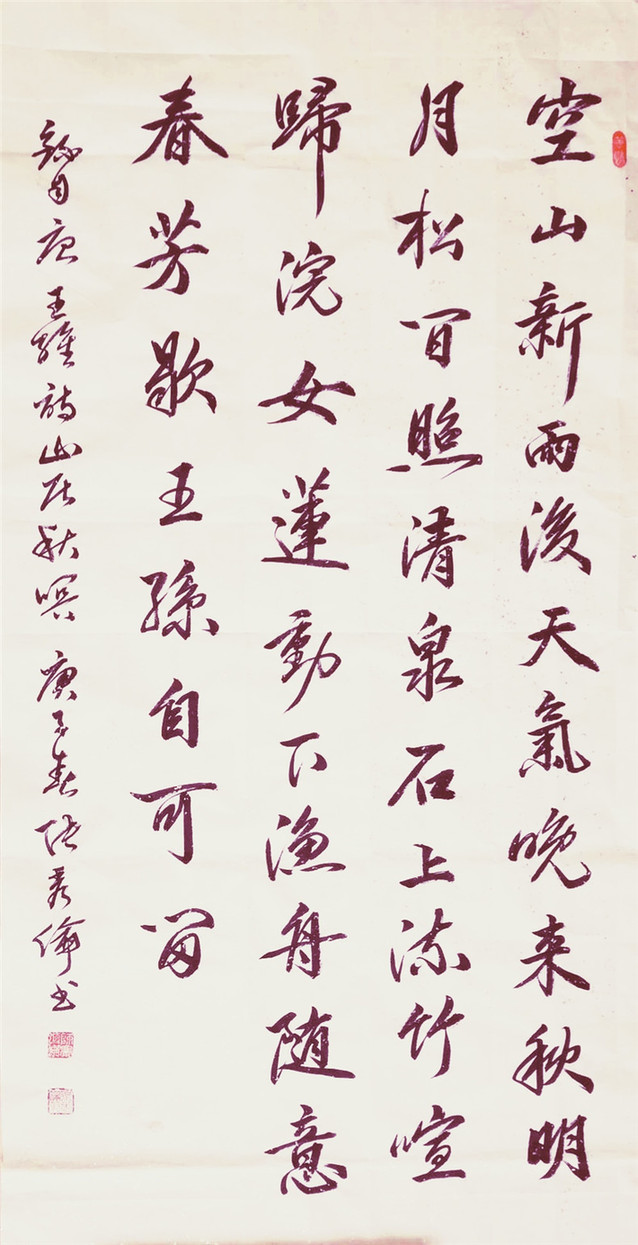 空山新雨後天氣晚来秋明
月松间照清泉石上流竹喧
歸浣女蓮動下漁舟随意
春芳歇王孫自可留
錄自唐王維詩山居秋暝庚子春張秀偉书